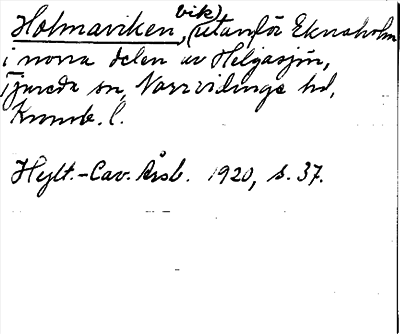 Holmaviken, (vik) utanför Eknaholm
i norra delen av Helgasjön,
Tjureda sn, Norrvidinge hd,
Kronob. l.
Hylt.-Cav. Årsb. 1920, s. 37.